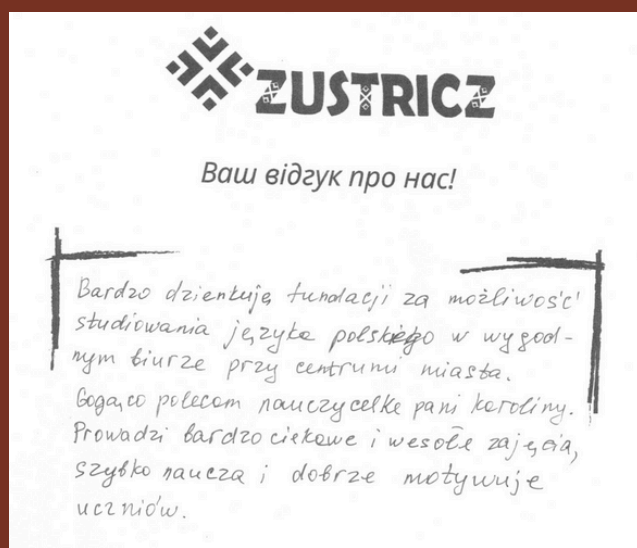 ZUSTRICZ
Ваш відгук про нас!
Bardzo dzienkuję fundacji za możliwość
studiowania języka polskiego w wygod-
nym biurze przy centrumi miasta.
Gogąco polecam nauczycelke pani Karoliny.
Prowadzi bardzo ciekawe i wesołe zajęcia,
szybko naucza i dobrze motywuje
uczniów.